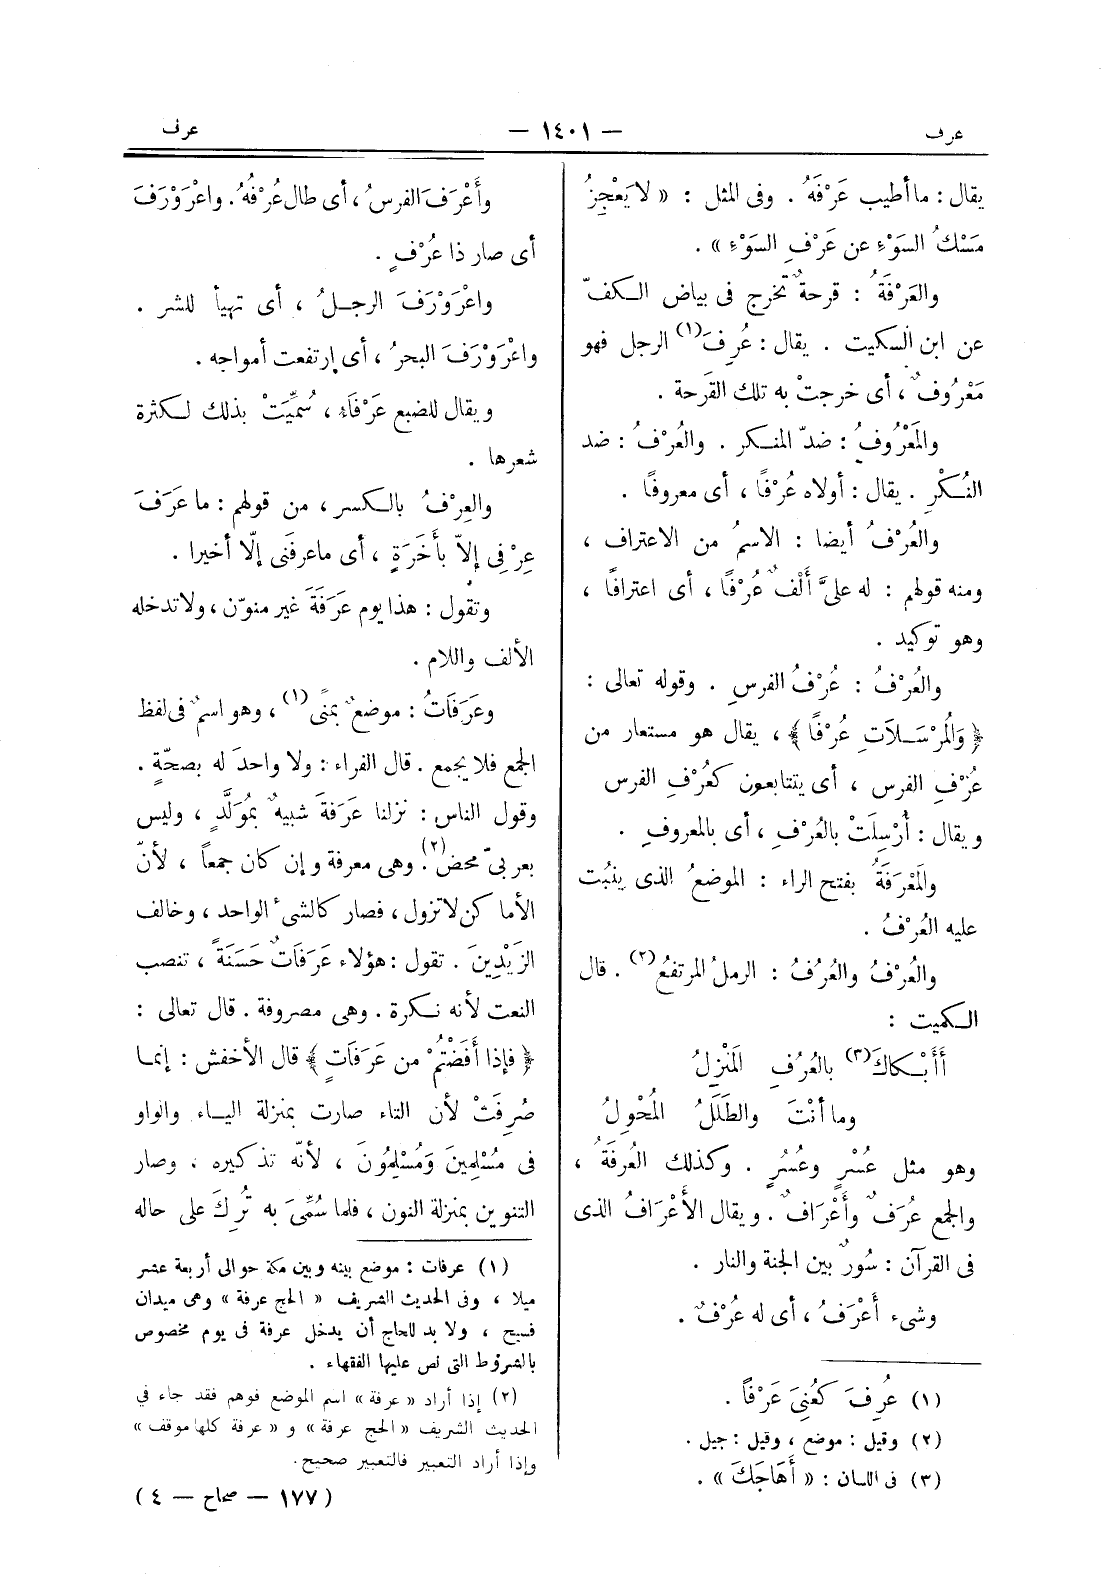 عرف
— ١٤٠١ —
عرف
يقال : ما أطيب عَرْفَهُ . وفى المثل : « لا يَعْجِزُ
مَسْكُ السَوْءِ عن عَرْفِ السَوْءِ » .
والعَرْفَةُ : قرحةٌ تخرج فى بياض الكفّ
عن ابن السكيت . يقال : عُرِفَ(١) الرجل فهو
مَعْرُوفٌ ، أى خرجتْ به تلك القَرحة .
والمَعْرُوفُ : ضدّ المنكر . والعُرْفُ : ضد
النُكْرِ . يقال : أولاه عُرْفًا ، أى معروفًا .
والعُرْفُ أيضا : الاسمُ من الاعتراف ،
ومنه قولهم : له علىَّ أَلْفٌ عُرْفًا ، أى اعترافًا ،
وهو توكيد .
والعُرْفُ : عُرْفُ الفرسِ . وقوله تعالى :
﴿ وَالمُرْسَلاَتِ عُرْفًا ﴾ ، يقال هو مستعار من
عُرْفِ الفرس ، أى يتتابعون كَعُرْفِ الفرس
ويقال : أُرْسِلَتْ بالعُرْفِ ، أى بالمعروفِ .
والمَعْرَفَةُ بفتح الراء : الموضعُ الذى يَنْبُت
عليه العُرْفُ .
والعُرْفُ والعُرُفُ : الرملُ المرتفعُ(٢) . قال
الكميت :
أَأَبْكاكَ(٣) بالعُرُفِ المَنْزِلُ
وما أنْتَ والطَلَلُ المُحْوِلُ
وهو مثل عُسْرٍ وعُسُرٍ . وكذلك العُرفَةُ ،
والجمع عُرَفٌ وأَعْرَافٌ . ويقال الأَعْرَافُ الذى
فى القرآن : سُورٌ بين الجنة والنار .
وشىء أَعْرَفُ ، أى له عُرْفٌ .
(١) عُرِفَ كَعُنِىَ عَرْفاً .
(٢) وقيل : موضع ، وقيل : جبل .
(٣) فى اللسان : « أَهَاجَكَ » .
وأَعْرَفَ الفرسُ ، أى طال عُرْفُهُ . واعْرَوْرَفَ
أى صار ذا عُرْفٍ .
واعْرَوْرَفَ الرجلُ ، أى تهيأ للشر .
واعْرَوْرَفَ البحرُ ، أى ارتفعت أمواجه .
ويقال للضبع عَرْفَاءُ ، سُمِّيَتْ بذلك لكثرة
شعرها .
والعِرْفُ بالكسر ، من قولهم : ما عَرَفَ
عِرْفِى إلاّ بأَخَرَةٍ ، أى ماعرفنى إلّا أخيرا .
وتقول : هذا يوم عَرَفَةَ غير منوّن ، ولا تدخله
الألف واللام .
وعَرَفَاتُ : موضعٌ بمنًى(١) ، وهو اسمٌ فى لفظ
الجمع فلا يجمع . قال الفراء : ولا واحدَ له بصحّةٍ .
وقول الناس : نزلنا عَرَفةَ شبيهٌ بمُوَلَّدٍ ، وليس
بعربىّ محض(٢) . وهى معرفة وإن كان جمعاً ، لأنّ
الأماكن لا تزول ، فصار كالشىء الواحد ، وخالف
الزَيْدِينَ . تقول : هؤلاء عَرَفَاتٌ حَسَنَةً ، تنصب
النعت لأنه نكرة . وهى مصروفة . قال تعالى :
﴿ فإذا أَفَضْتُمْ من عَرَفَاتٍ ﴾ قال الأخفش : إنما
صُرِفَتْ لأن التاء صارت بمنزلة الياء والواو
فى مُسْلِمِينَ وَمُسْلِمُونَ ، لأنّه تذكيره ، وصار
التنوين بمنزلة النون ، فلما سُمِّىَ به تُرِكَ على حاله
(١) عرفات : موضع بينه وبين مكة حوالى أربعة عشر
ميلا ، وفى الحديث الشريف « الحج عرفة » وهى ميدان
فسيح ، ولا بد للحاج أن يدخل عرفة فى يوم مخصوص
بالشروط التى نص عليها الفقهاء .
(٢) إذا أراد « عرفة » اسم الموضع فوهم فقد جاء في
الحديث الشريف « الحج عرفة » و « عرفة كلها موقف »
وإذا أراد التعبير فالتعبير صحيح .
( ١٧٧ — صحاح — ٤ )